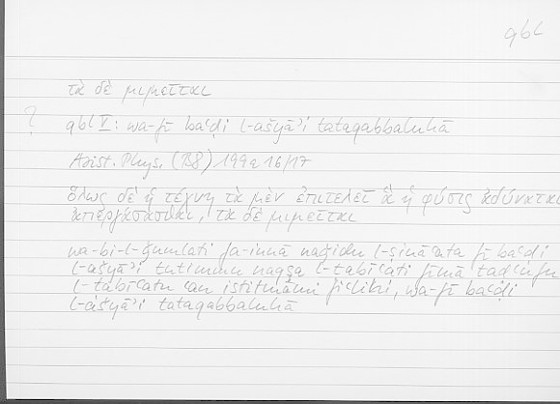 qbl
τὰ δὲ μιμεῖται
? qbl V: wa-fī baʿḍi l-ašyāʾi tataqabbaluhā
Arist. Phys. (B8) 199a 16/17
ὅλως δὲ ἡ τέχνη τὰ μὲν ἐπιτελεῖ ἃ ἡ φύσις ἀδυνατεῖ
ἀπεργάσασθαι, τὰ δὲ μιμεῖται
wa-bi-l-ǧumlati fa-innā naǧidu l-ṣināʿata fī baʿḍi
l-ašyāʾi tutimmu naqṣa l-ṭabīʿati fīmā taḍʿufu
l-ṭabīʿatu ʿan istitmāmi fiʿlihī, wa-fī baʿḍi
l-ašyāʾi tataqabbaluhā